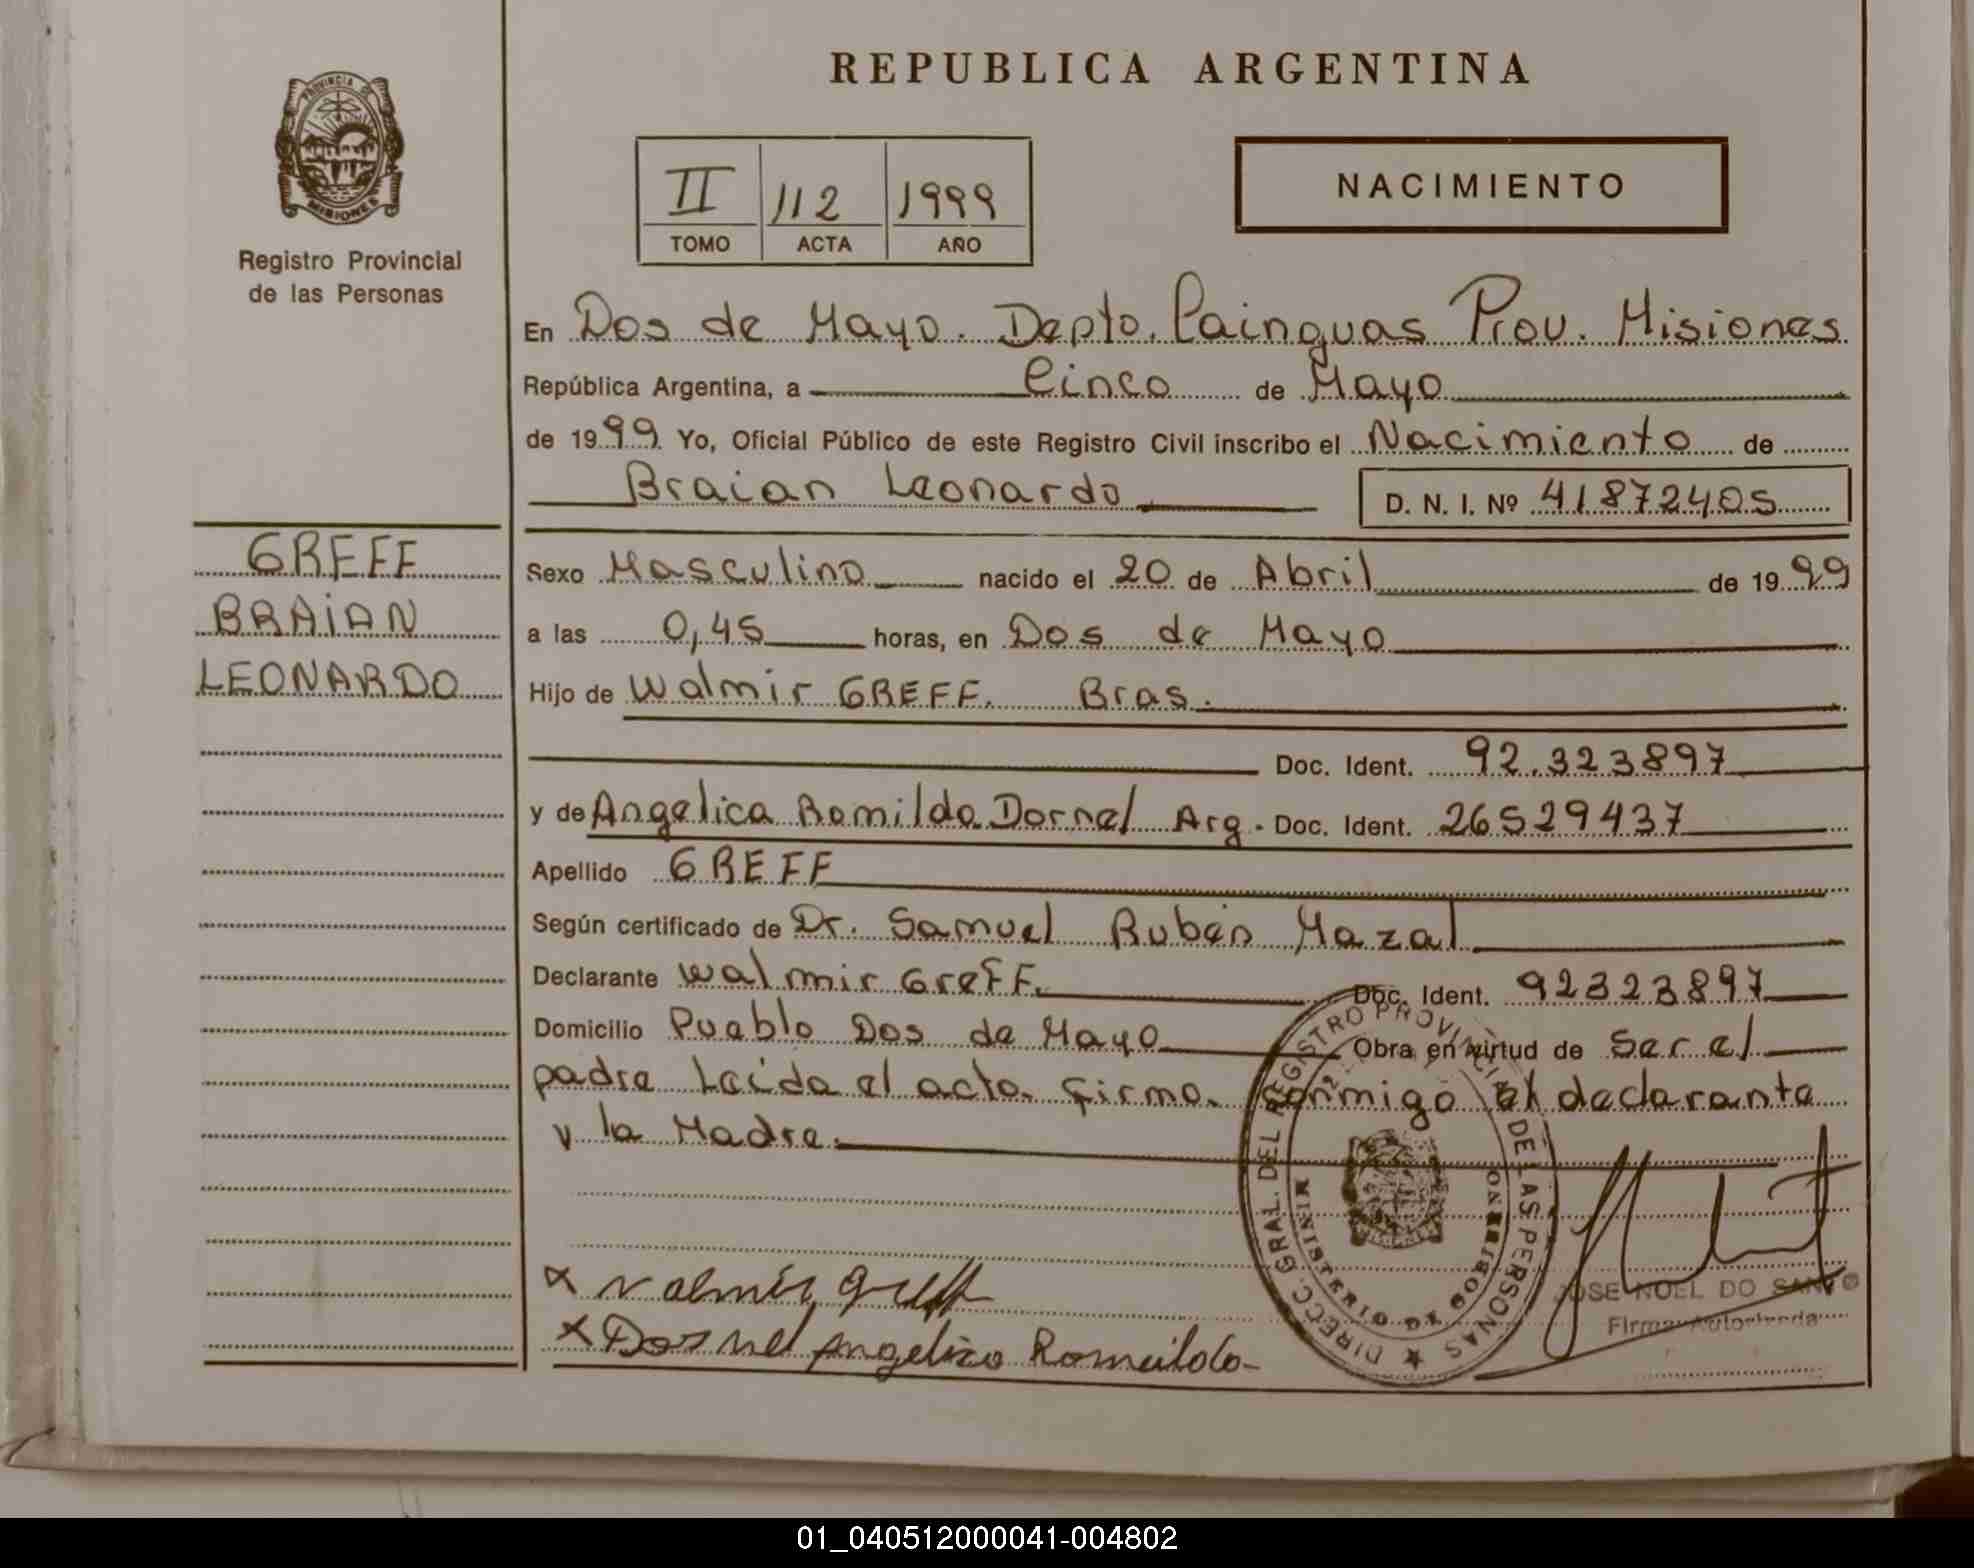 REPUBLICA ARGENTINA
PROVINCIA DE
MISIONES
Registro Provincial
de las Personas
II 112 1999
TOMO ACTA AÑO
NACIMIENTO
En Dos de Mayo. Depto. Cainguas Prov. Misiones
República Argentina, a Cinco de Mayo
de 1999 Yo, Oficial Público de este Registro Civil inscribo el Nacimiento de
Braian Leonardo D. N. I. Nº 41872405
GREFF
BRAIAN
LEONARDO
Sexo Masculino nacido el 20 de Abril de 1999
a las 0,45 horas, en Dos de Mayo
Hijo de Walmir GREFF. Bras.
Doc. Ident. 92.323897
y de Angelica Romilda Dornel Arg. Doc. Ident. 26529437
Apellido GREFF
Según certificado de Dr. Samuel Rubén Mazal
Declarante Walmir Greff. Doc. Ident. 92323897
Domicilio Pueblo Dos de Mayo Obra en virtud de Ser el
padre Leída el acta. firma. conmigo el declarante
y la Madre.
x Valmir Greff
x Dornel Angelica Romilda
DIRECC. GRAL. DEL REGISTRO PROVINCIAL DE LAS PERSONAS
MINISTERIO DE GOBIERNO
JOSE NOEL DO SANTOS
Firma Autorizada
01_040512000041-004802